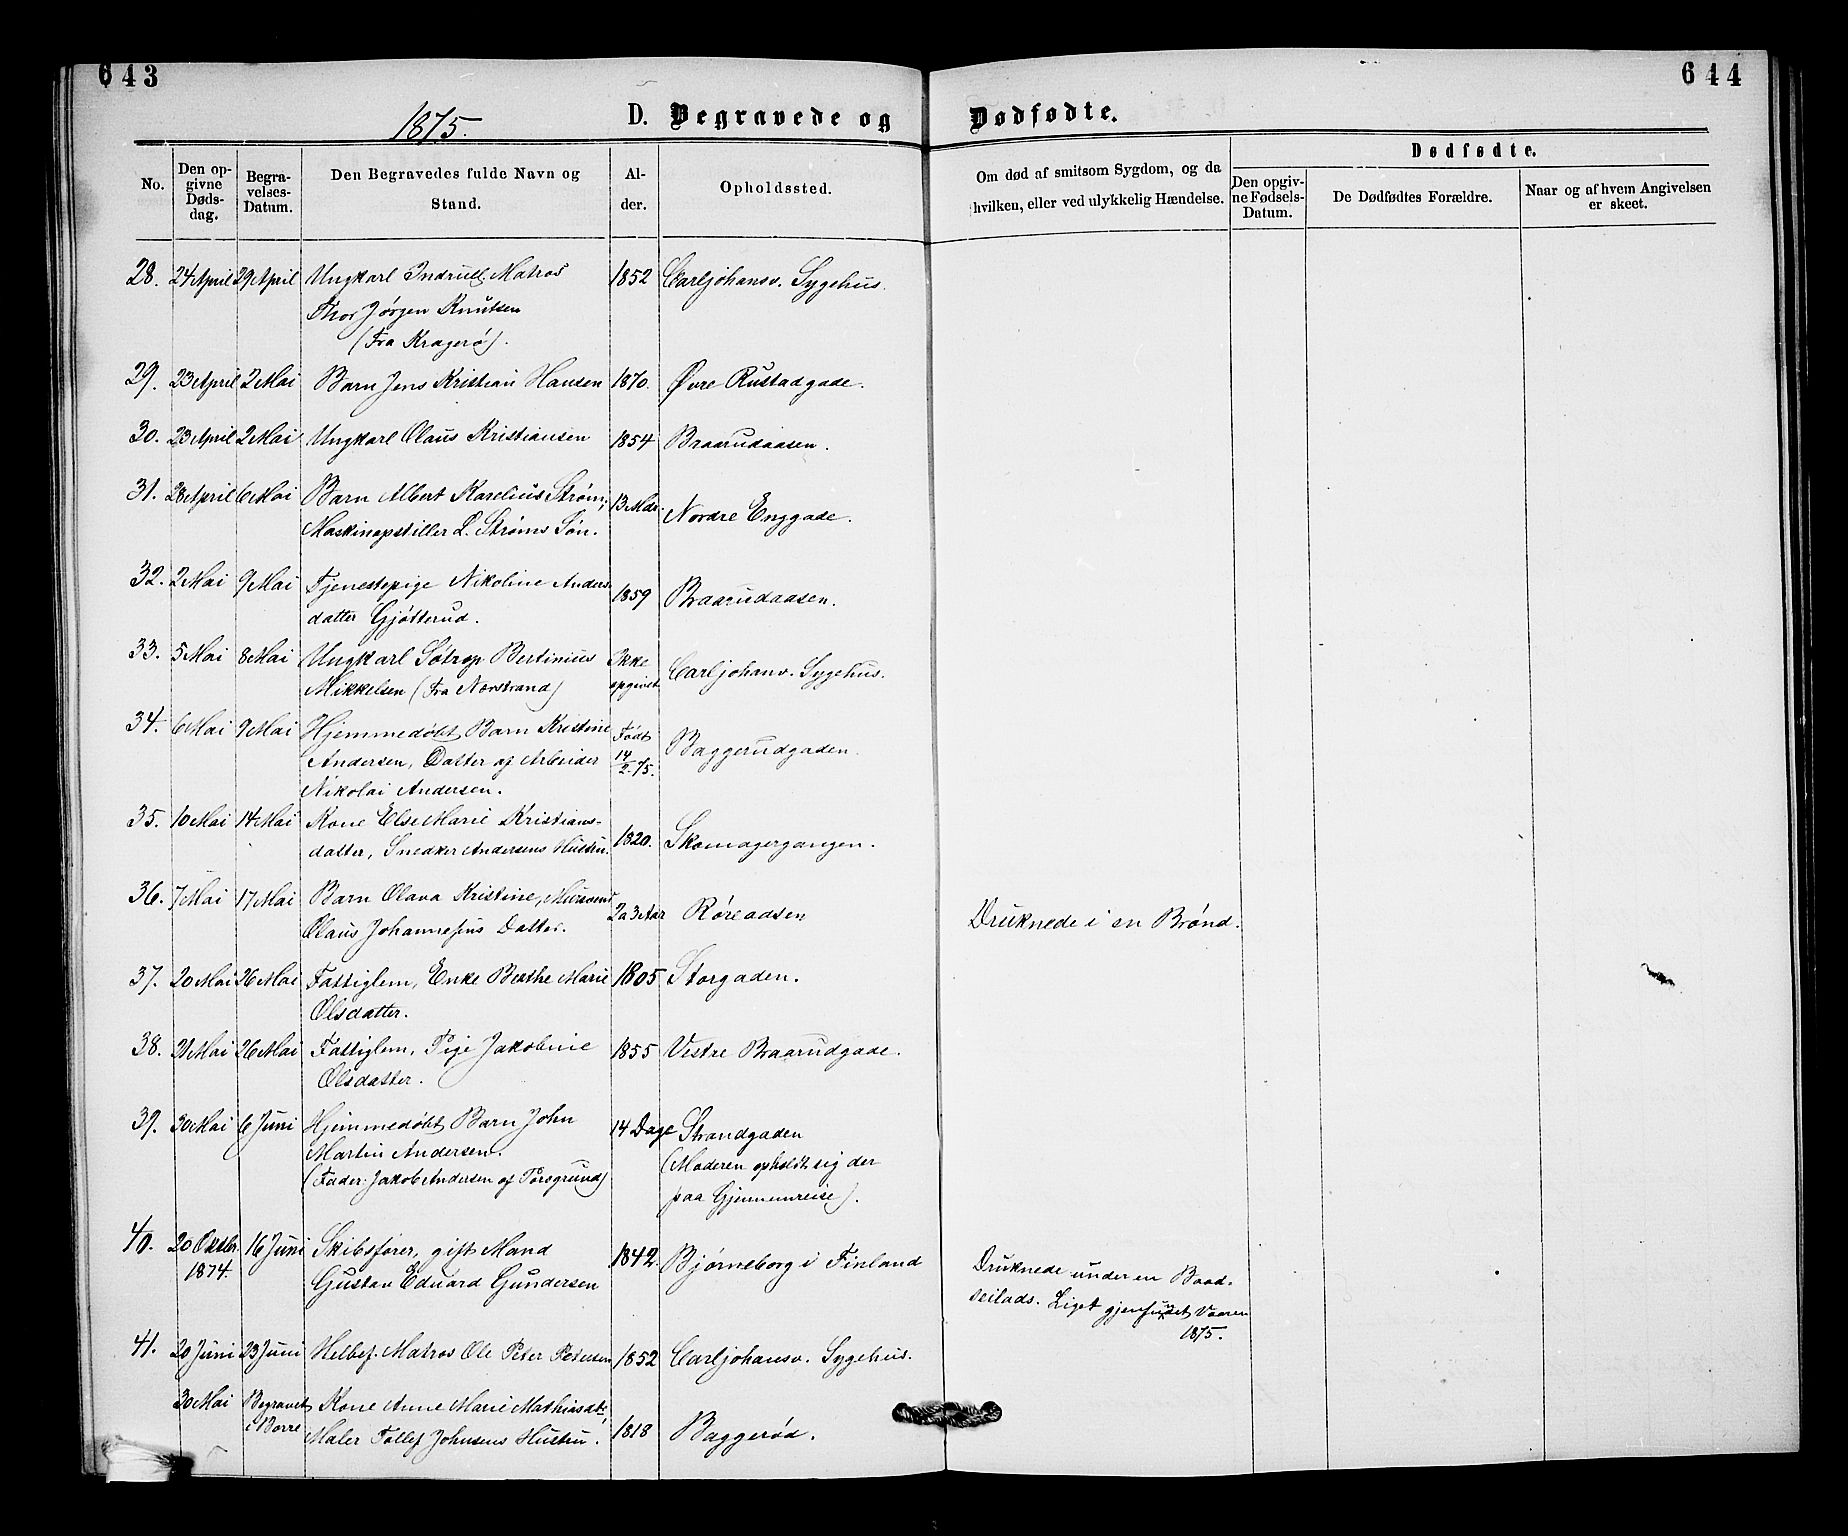 643
644
1875.
D. Begravede og Dødfødte.
No.
Den op-
givne
Døds-
dag.
Begra-
velses-
Datum.
Den Begravedes fulde Navn og
Stand.
Al-
der.
Opholdssted.
Om død af smitsom Sygdom, og da
hvilken, eller ved ulykkelig Hændelse.
Dødfødte.
Den opgiv-
ne Fødsels-
Datum.
De Dødfødtes Forældre.
Naar og af hvem Angivelsen
er skeet.
28. 24 April 29 April Ungkarl Indrull. Matros 1852 Carljohansv. Sygehus.
Thor Jørgen Knutsen
(Fra Kragerø).
29. 23 April 2 Mai Barn Jens Kristian Hansen 1870. Øvre Rustadgade.
30. 23 April 2 Mai Ungkarl Olaus Kristiansen 1854 Braarudaasen.
31. 28 April 6 Mai Barn Albert Karelius Strøm, 13 Mdr. Nordre Enggade.
Maskinopstiller L. Strøms Søn.
32. 2 Mai 9 Mai Tjenestepige Nikoline Anders- 1859 Braarudaasen.
datter Gjøtterud.
33. 5 Mai 8 Mai Ungkarl Søtrop Bertinius Ikke opgivet Carljohansv. Sygehus.
Mikkelsen (Fra Nøvstrand)
34. 6 Mai 9 Mai Hjemmedøbt Barn Kristine Født 14/2.75. Baggerudgaden.
Andersen, Datter af Arbeider
Nikolai Andersen.
35. 10 Mai 14 Mai Kone Else Marie Kristians- 1820. Skomagergangen.
datter, Snedker Andersens Hustru.
36. 7 Mai 17 Mai Barn Olava Kristine, Mursvend 2 a 3 Aar Røreaasen Druknede i en Brønd.
Olaus Johannesens Datter.
37. 20 Mai 26 Mai Fattiglem, Enke Berthe Marie 1805 Storgaden.
Olsdatter.
38. 21 Mai 26 Mai Fattiglem, Pige Jakobine 1855 Vestre Braarudgade.
Olsdatter.
39. 30 Mai 6 Juni Hjemmedøbt Barn John 14 Dage Strandgaden
Martin Andersen. (Moderen opholdt sig der
(Fader: Jakob Andersen af Porsgrund) paa Gjennemreise).
40. 20 Oktbr. 16 Juni Skibsfører, gift Mand 1842. Bjørneborg i Finland Druknede under en Baad-
1874. Gustav Eduard Gundersen seilads. Liget gjenfundet Vaaren
1875.
41. 20 Juni 23 Juni Helbef. Matros Ole Peter Petersen 1852 Carljohansv. Sygehus.
30 Mai Begravet Kone Anne Marie Mathiasdt. 1818 Baggerød.
i Borre Maler Tollef Johnsens Hustru.